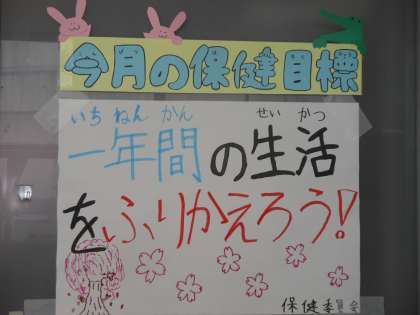 今月の保健目標
いちねんかん せいかつ
一年間の生活
をふりかえろう!
保健委員会